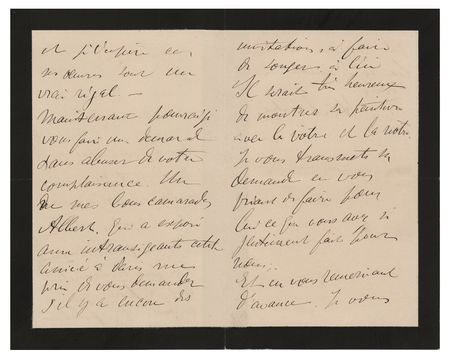 et j'espère ces
oeuvres sont un
vrai régal. —
Maintenant pourrai-je
vous faire une demande
sans abuser de votre
complaisance. Un
de mes bons camarades
Albert, qui a exposé
aux intransigeants cette
année à
prie de vous demander
s'il y a encore des
invitations à faire
de songer à lui
Il serait très heureux
de montrer sa peinture
avec la votre et la notre.
Je vous transmets sa
demande en vous
priant de faire pour
lui ce que vous avez si
gentiment fait pour
nous.
Et en vous remerciant
d'avance. Je vous